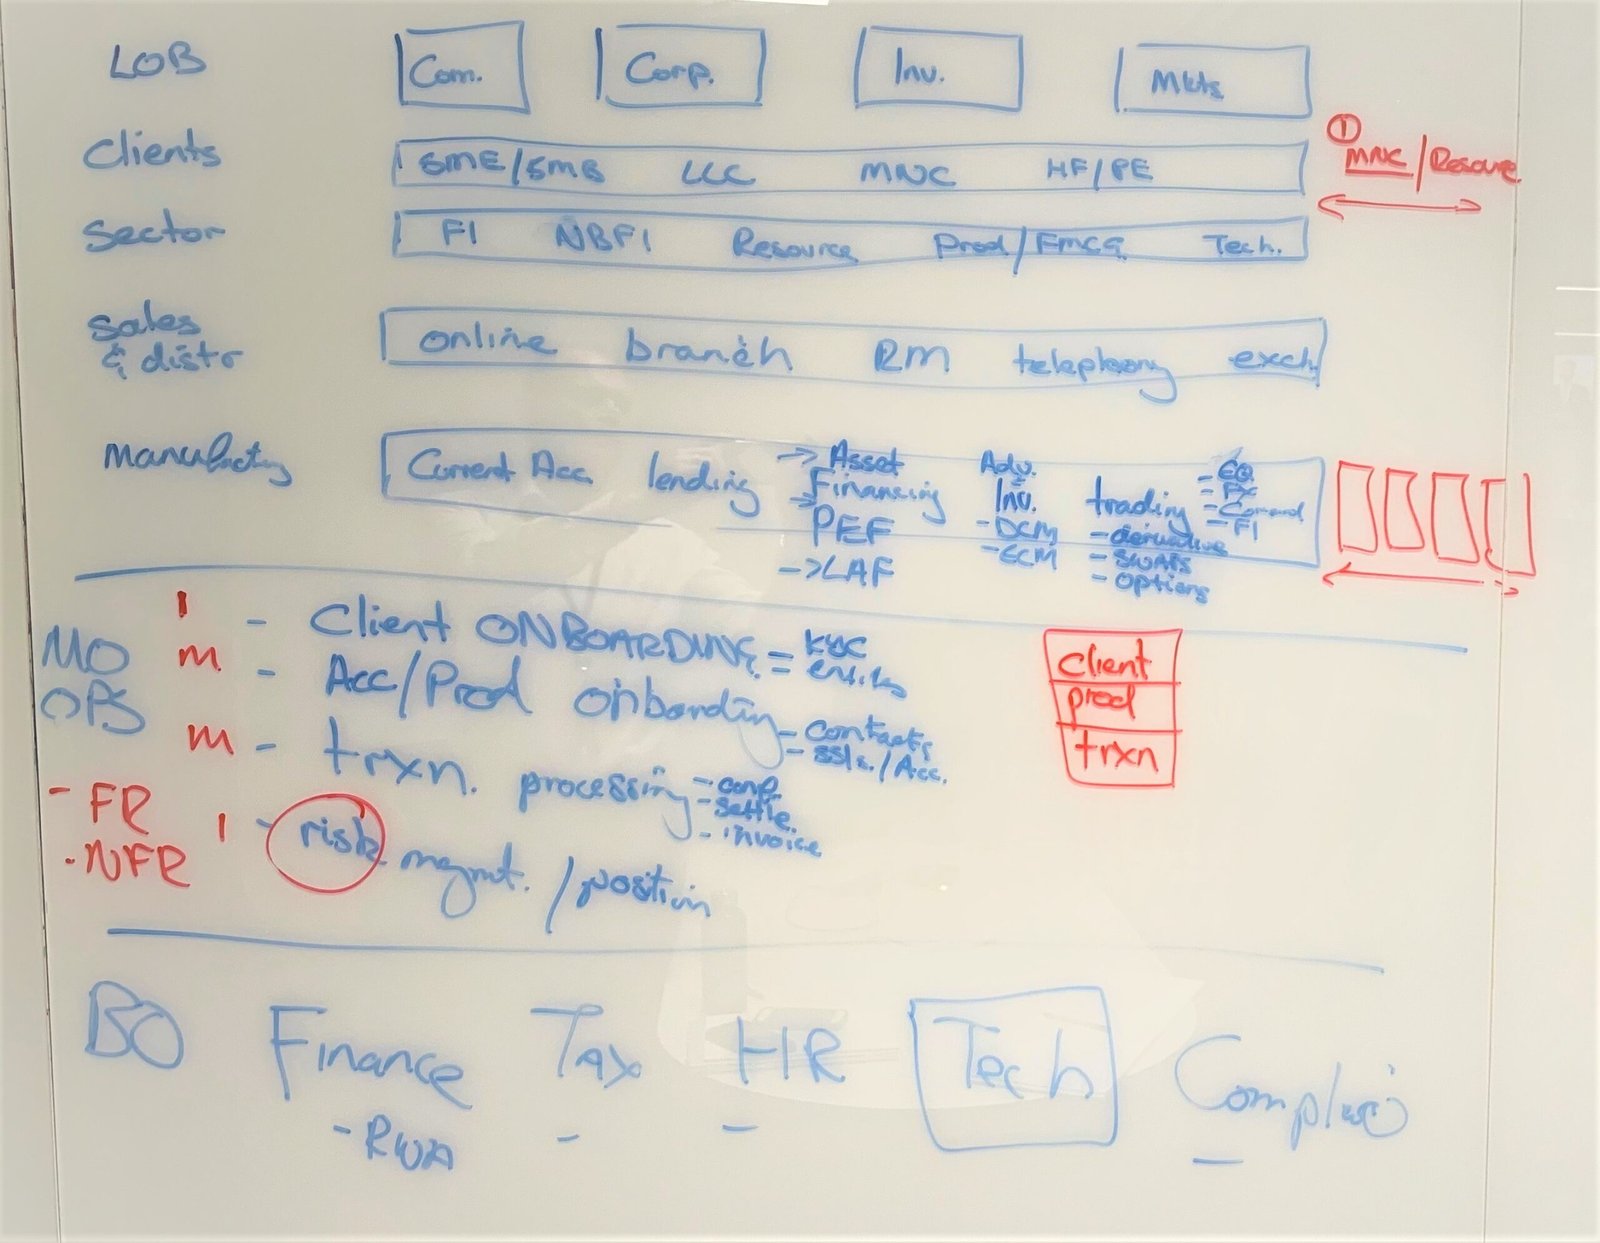 LOB Com. Corp. Inv. Mkts
Clients SME/SMB LLC MNC HF/PE
①
MNC/Resource
Sector FI NBFI Resource Prod/FMCG Tech.
Sales
& distr
online branch RM telephony exch
Current Acc lending
→ Asset
Financing
→
PEF
→ LAF
Adv.
Inv.
- DCM
- ECM
trading
- derivative
- SWAPS
- options
- EQ
- FX
- FI
MO
OPS
1 - Client ONBOARDING
= KYC
m - Acc/Prod onboarding
- SSIs/Acc.
m - trxn. processing
- settle.
- invoice
- FR
- NFR
1 - risk mgmt. / position
client
prod
trxn
BO Finance Tax HR Tech
- RWA - - -